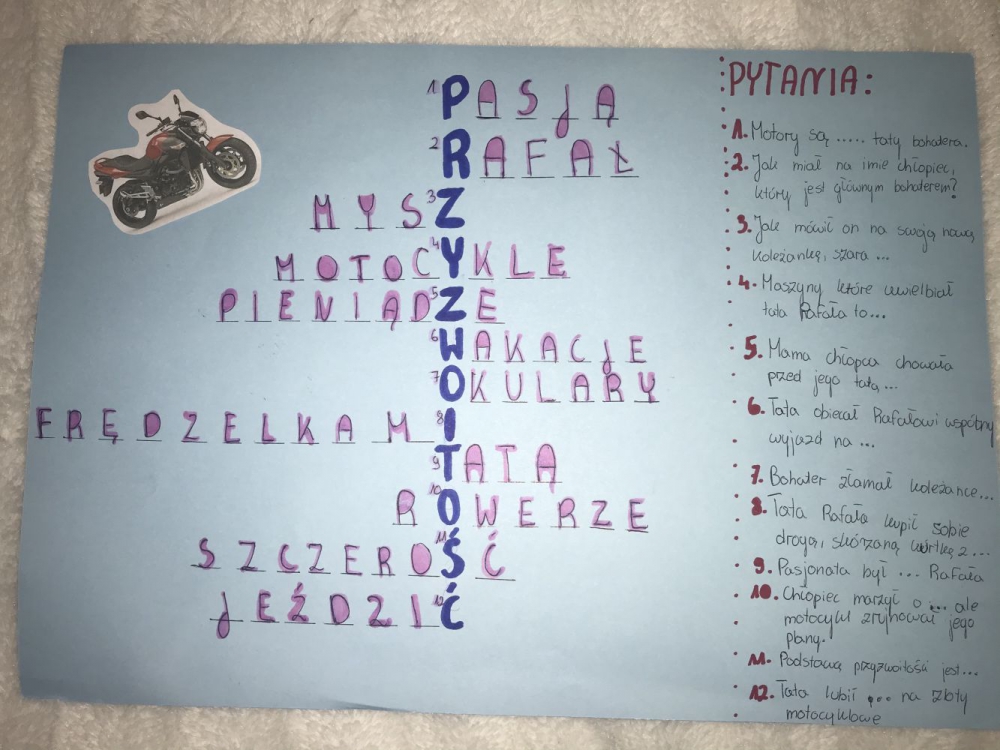 1 PASJĄ
2 RAFAŁ
MYS 3 Z
MOTOC 4 YKLE
PIENIĄD 5 ZE
6 WAKACJE
7 OKULARY
FRĘDZELKAM 8 I
9 TATA
R 10 OWERZE
SZCZERO 11 ŚĆ
JEŹDZI 12 Ć
PYTANIA:
1. Motory są ..... taty bohatera.
2. Jak miał na imie chłopiec,
który jest głównym bohaterem?
3. Jak mówił on na swoją nową
koleżankę, szara ...
4. Maszyny które uwielbiał
tata Rafała to...
5. Mama chłopca chowała
przed jego tatą...
6. Tata obiecał Rafałowi wspólny
wyjazd na ...
7. Bohater złamał koleżance...
8. Tata Rafała kupił sobie
drogą, skórzaną kurtkę z ...
9. Pasjonata był ... Rafała
10. Chłopiec marzył o ... ale
motocykl zrujnował jego
plany.
11. Podstawą przyzwoitości jest...
12. Tata lubił ... na zloty
motocyklowe